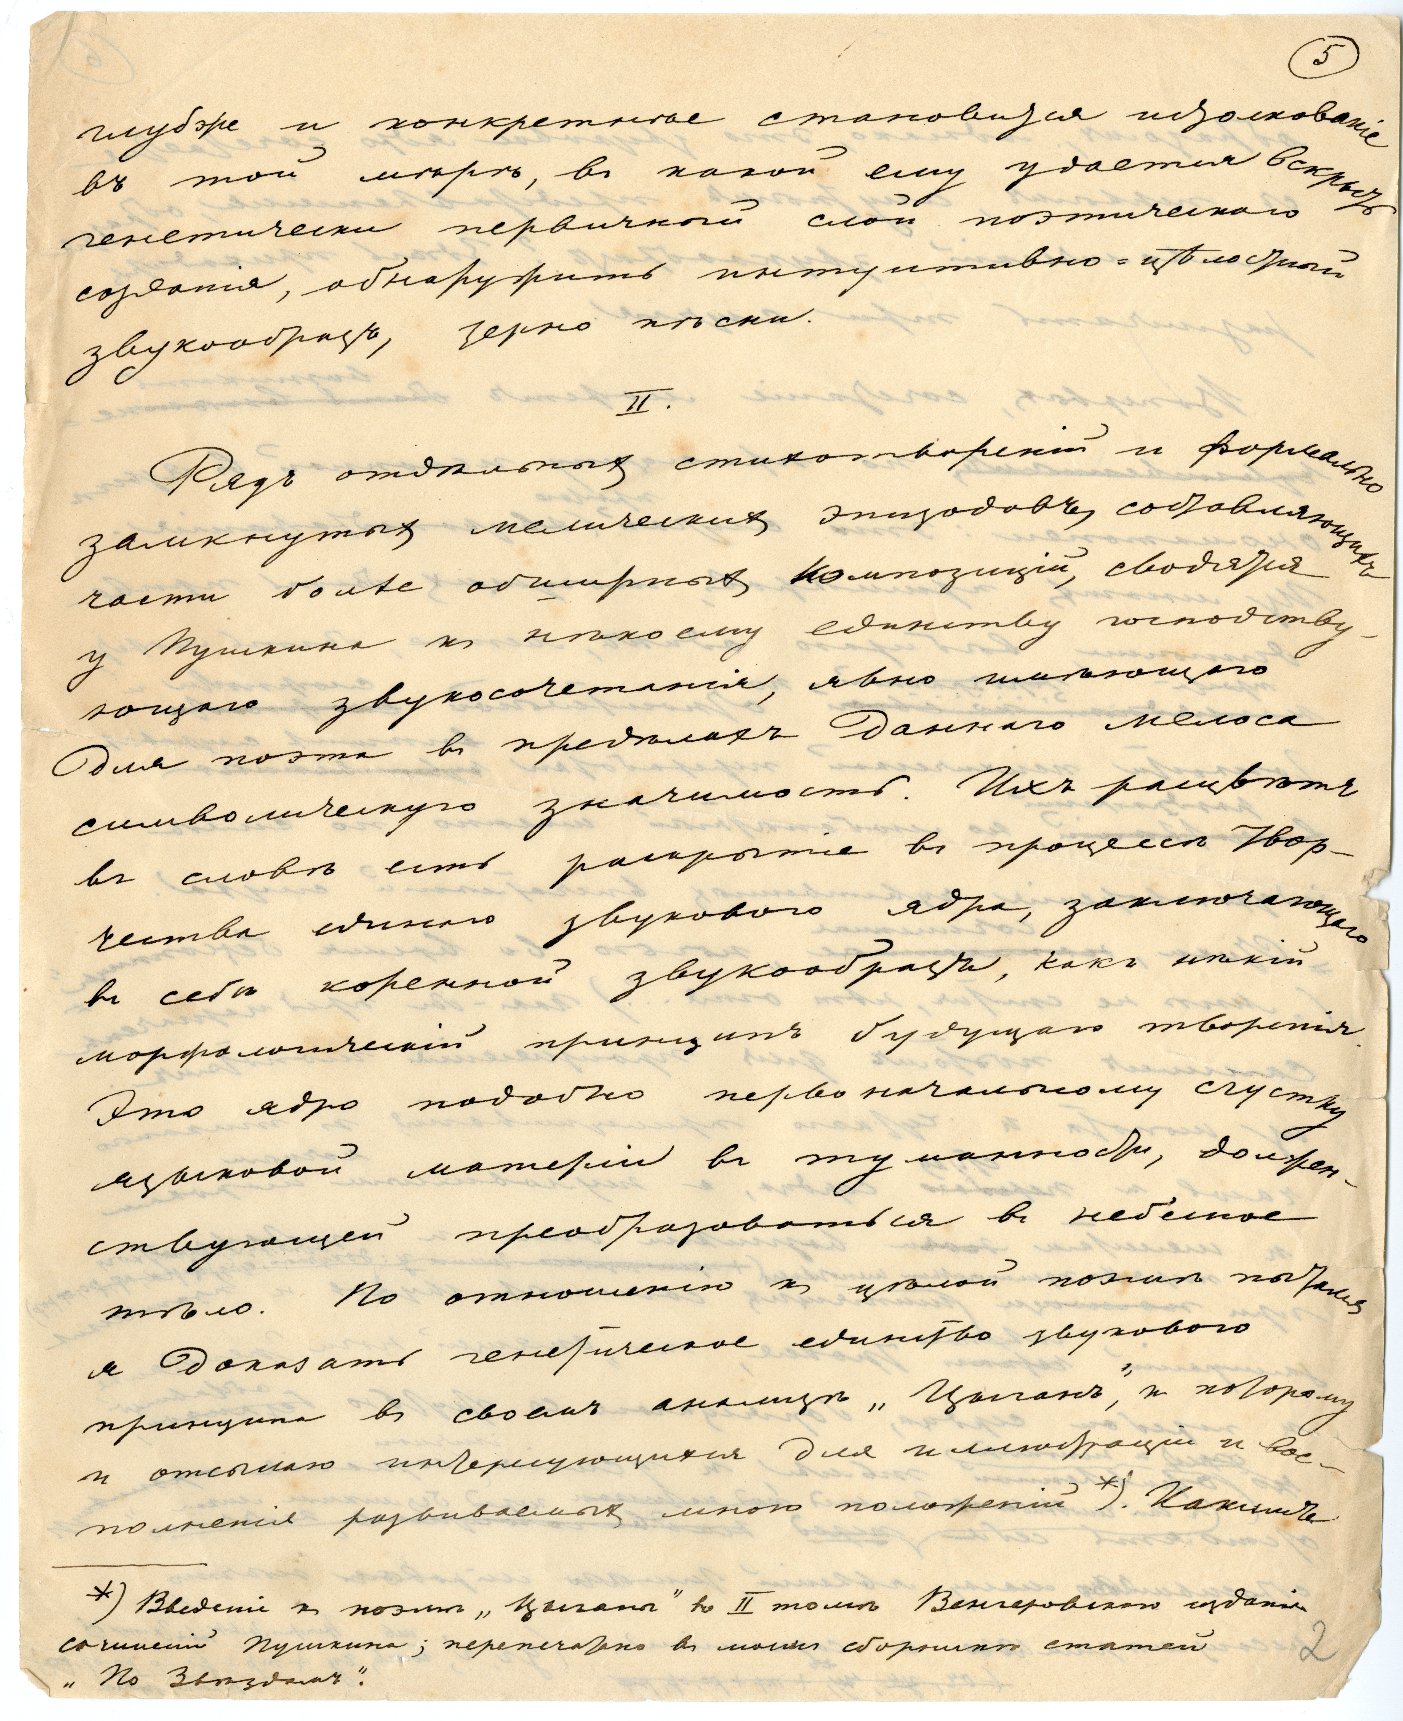 5
глубже и конкретнѣе становится истолкованіе
въ той мѣрѣ, въ какой ему удается вскрыть
генетически первичный слой поэтическаго
созданія, обнаружить интуитивно-цѣлостный
звукообразъ, зерно пѣсни.
II.
Рядъ отдѣльныхъ стихотвореній и формально
замкнутыхъ мелическихъ эпизодовъ, составляющихъ
части болѣе обширныхъ композицій, сводятся
у Пушкина къ нѣкоему единству господству-
ющаго звукосочетанія, явно имѣющаго
для поэта въ предѣлахъ даннаго мелоса
символическую значимость. Ихъ расцвѣтъ
въ словѣ есть раскрытіе въ процессѣ твор-
чества единаго звукового ядра, заключающаго
въ себѣ коренной звукообразъ, какъ нѣкій
морфологическій принципъ будущаго творенія.
Это ядро подобно первоначальному сгустку
языковой матеріи въ туманности, должен-
ствующей преобразоваться въ небесное
тѣло. По отношенію къ цѣлой поэмѣ пытался
я доказать генетическое единство звукового
принципа въ своемъ анализѣ „Цыганъ", къ которому
и отсылаю интересующихся для иллюстраціи и вос-
полненія развиваемыхъ мною положеній *). Какимъ
*) Введеніе къ поэмѣ „Цыганы" во II томѣ Венгеровскаго изданія
сочиненій Пушкина; перепечатано въ моемъ сборникѣ статей
„По Звѣздамъ".
2